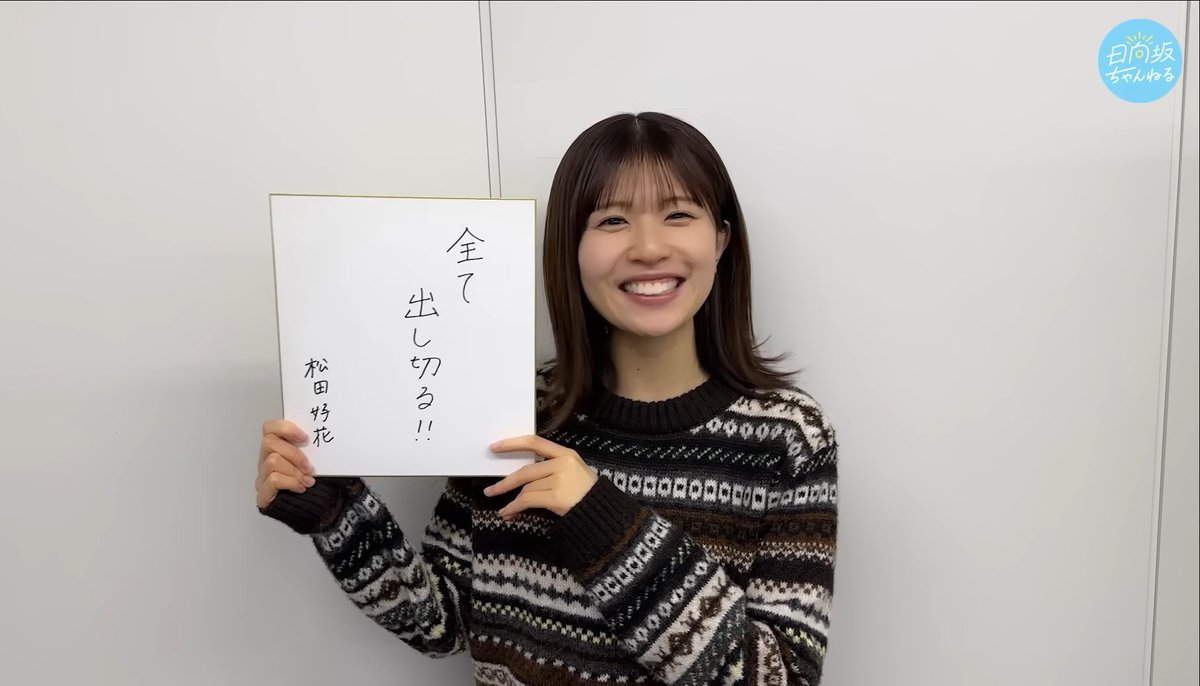 全て
出し切る!!
松田好花
日向坂
ちゃんねる